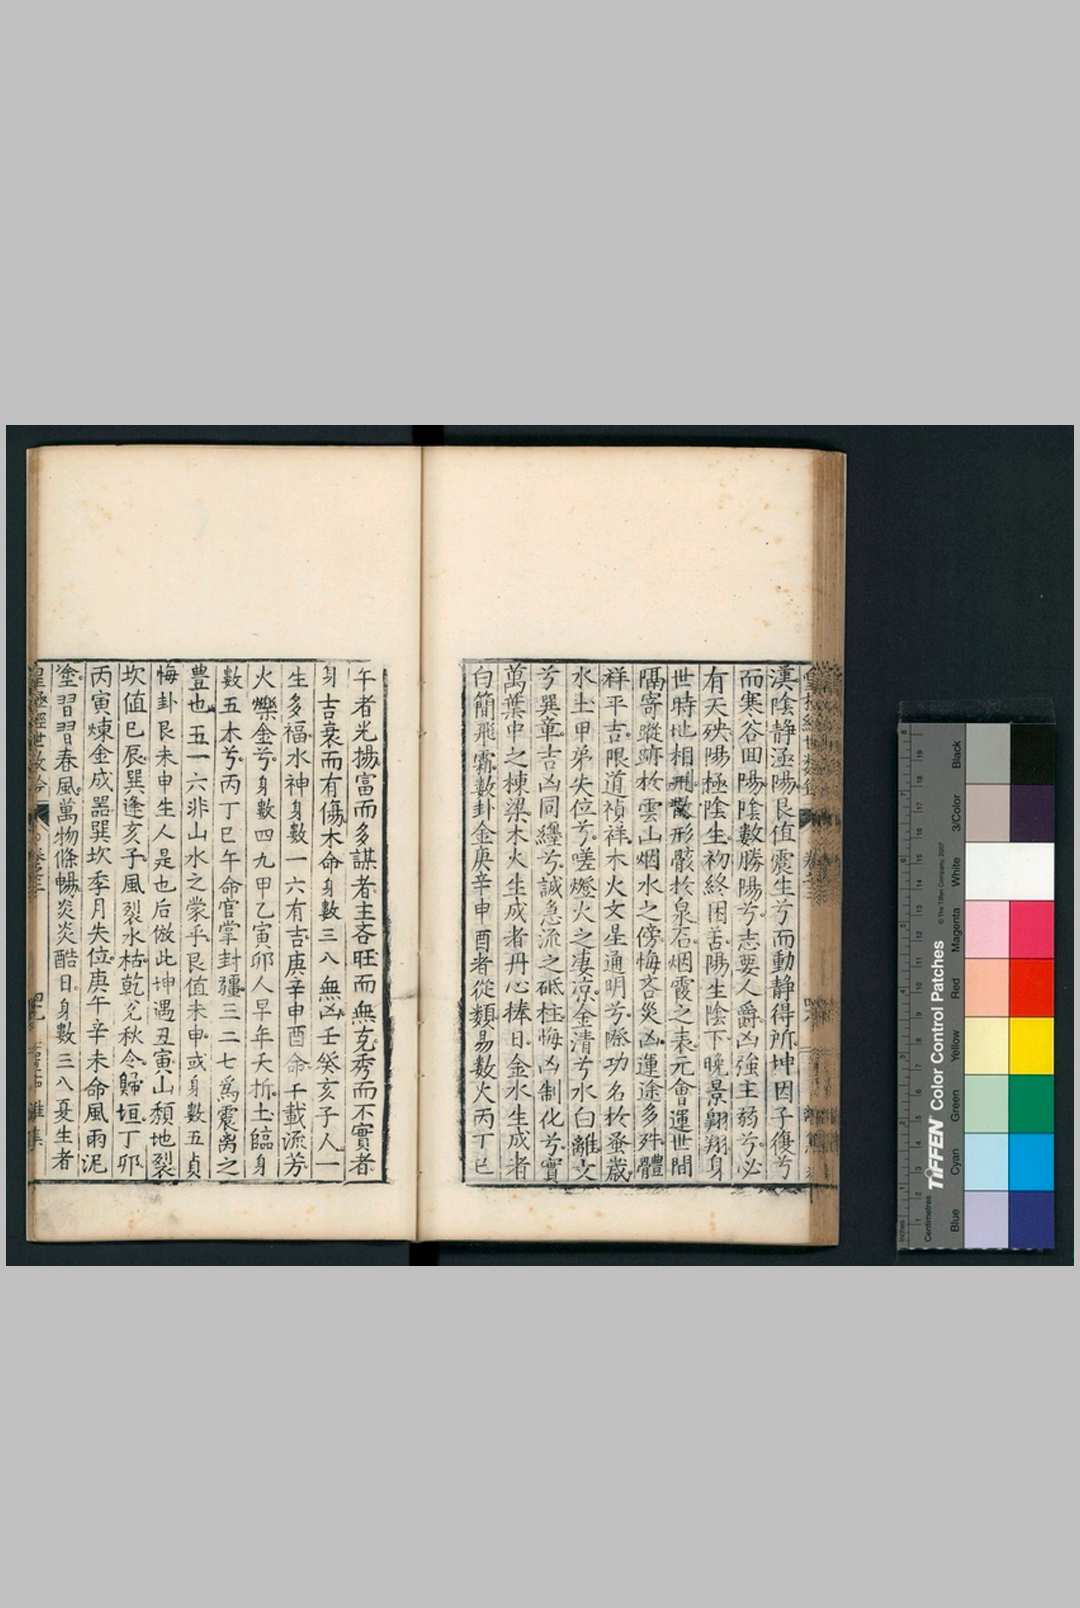 漠陰静溼陽艮值震生兮而動静得所坤因子復兮
而寒谷回陽陰數勝陽兮志要人爵凶強主弱兮必
有天殃陽極陰生初終困苦陽生陰下晚景翱翔身
世時地相刑散形骸於泉石烟霞之表元會運世間
隔寄蹤跡於雲山烟水之傍悔吝災凶運途多殊體
祥平吉限道禎祥木火文星通明兮際功名於蚤歲
水土甲弟失位兮嗟燈火之凄凉金清兮水白離文
兮巽章吉凶同纏兮誠急流之砥柱悔凶制化兮實
萬葉中之棟梁木火生成者丹心捧日金水生成者
白簡飛霜數卦金庚辛申酉者從類易數火丙丁巳
午者光揚富而多謀者主吝旺而無克秀而不實者
身吉衰而有傷木命身數三八無凶壬癸亥子人一
生多福水神身數一六有吉庚辛申酉命千載流芳
火爍金兮身數四九甲乙寅卯人早年夭折土臨身
數五木兮丙丁巳午命官掌封疆三二七為震离之
豊也五一六非山水之蒙乎艮值未申或身數五貞
悔卦艮未申生人是也后倣此坤遇丑寅山頹地裂
坎值巳辰巽逢亥子風裂水枯乾兌秋令歸垣丁卯
丙寅煉金成噐巽坎季月失位庚午辛未命風雨泥
塗習習春風萬物條暢炎炎酷日身數三八夏生者
皇極經世數
TIFFEN Color Control Patches
© The Tiffen Company, 2007
Inches
Centimetres
Blue Cyan Green Yellow Red Magenta White 3/Color Black